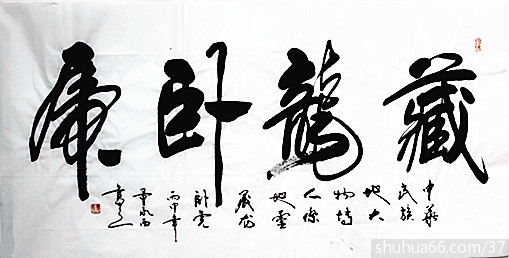 藏龍卧虎
中華
民族
地大
物博
人傑
地靈
藏龙
卧虎
丙申年
shuhua66.com/37